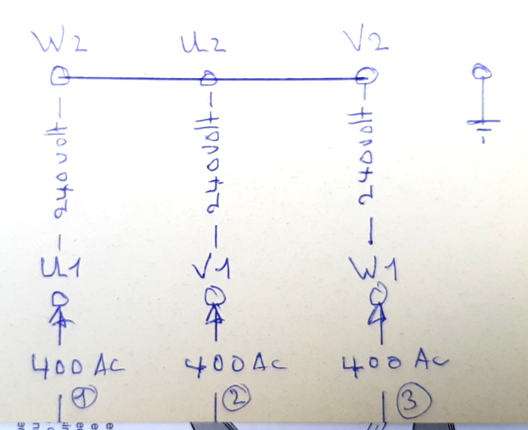 W2 U2 V2
240volt 240volt 240volt
U1 V1 W1
400 AC 400 AC 400 AC
1 2 3